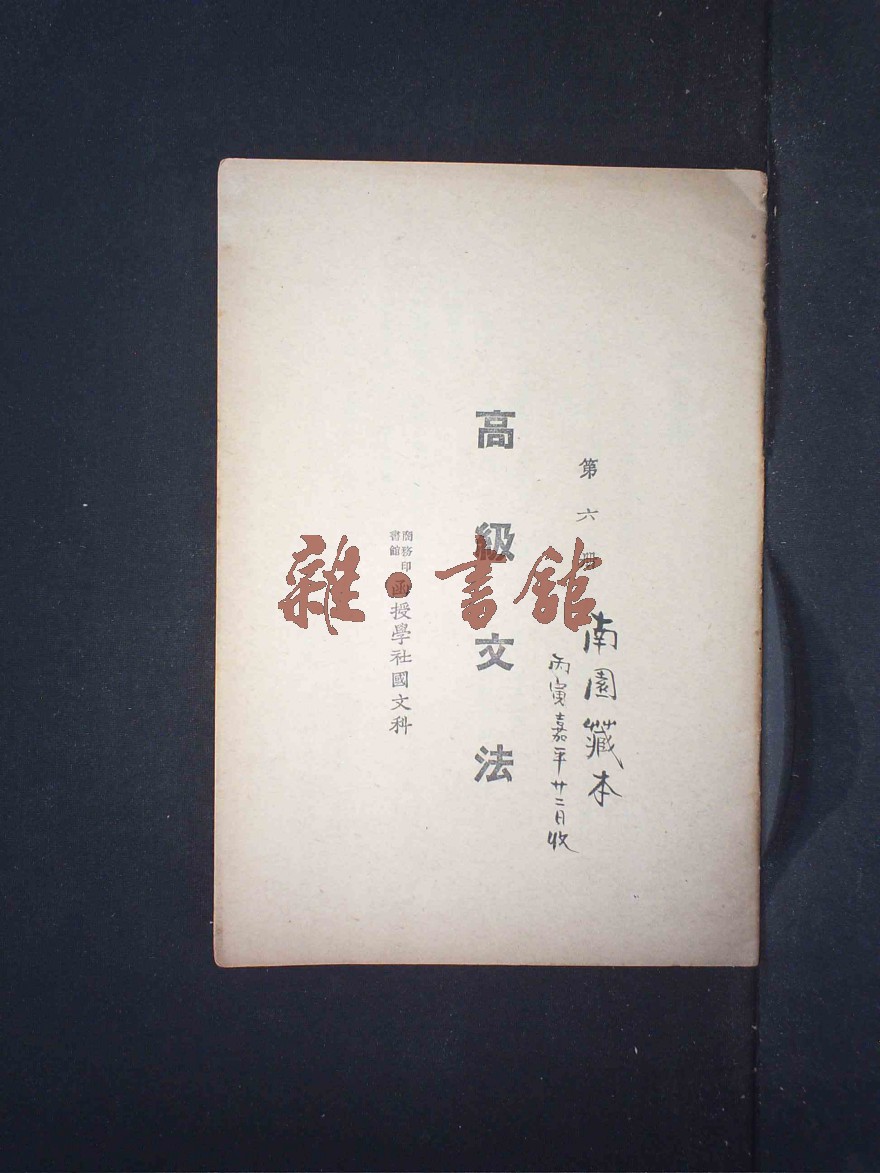 第六册
南園藏本
丙寅嘉平廿二日收
高級文法
商務印書館函授學社國文科
雜·書館